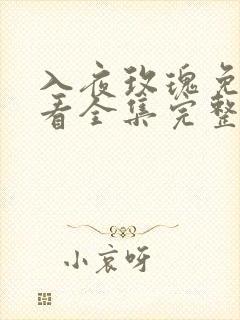 入夜玫瑰免
看全集完整
小哀呀